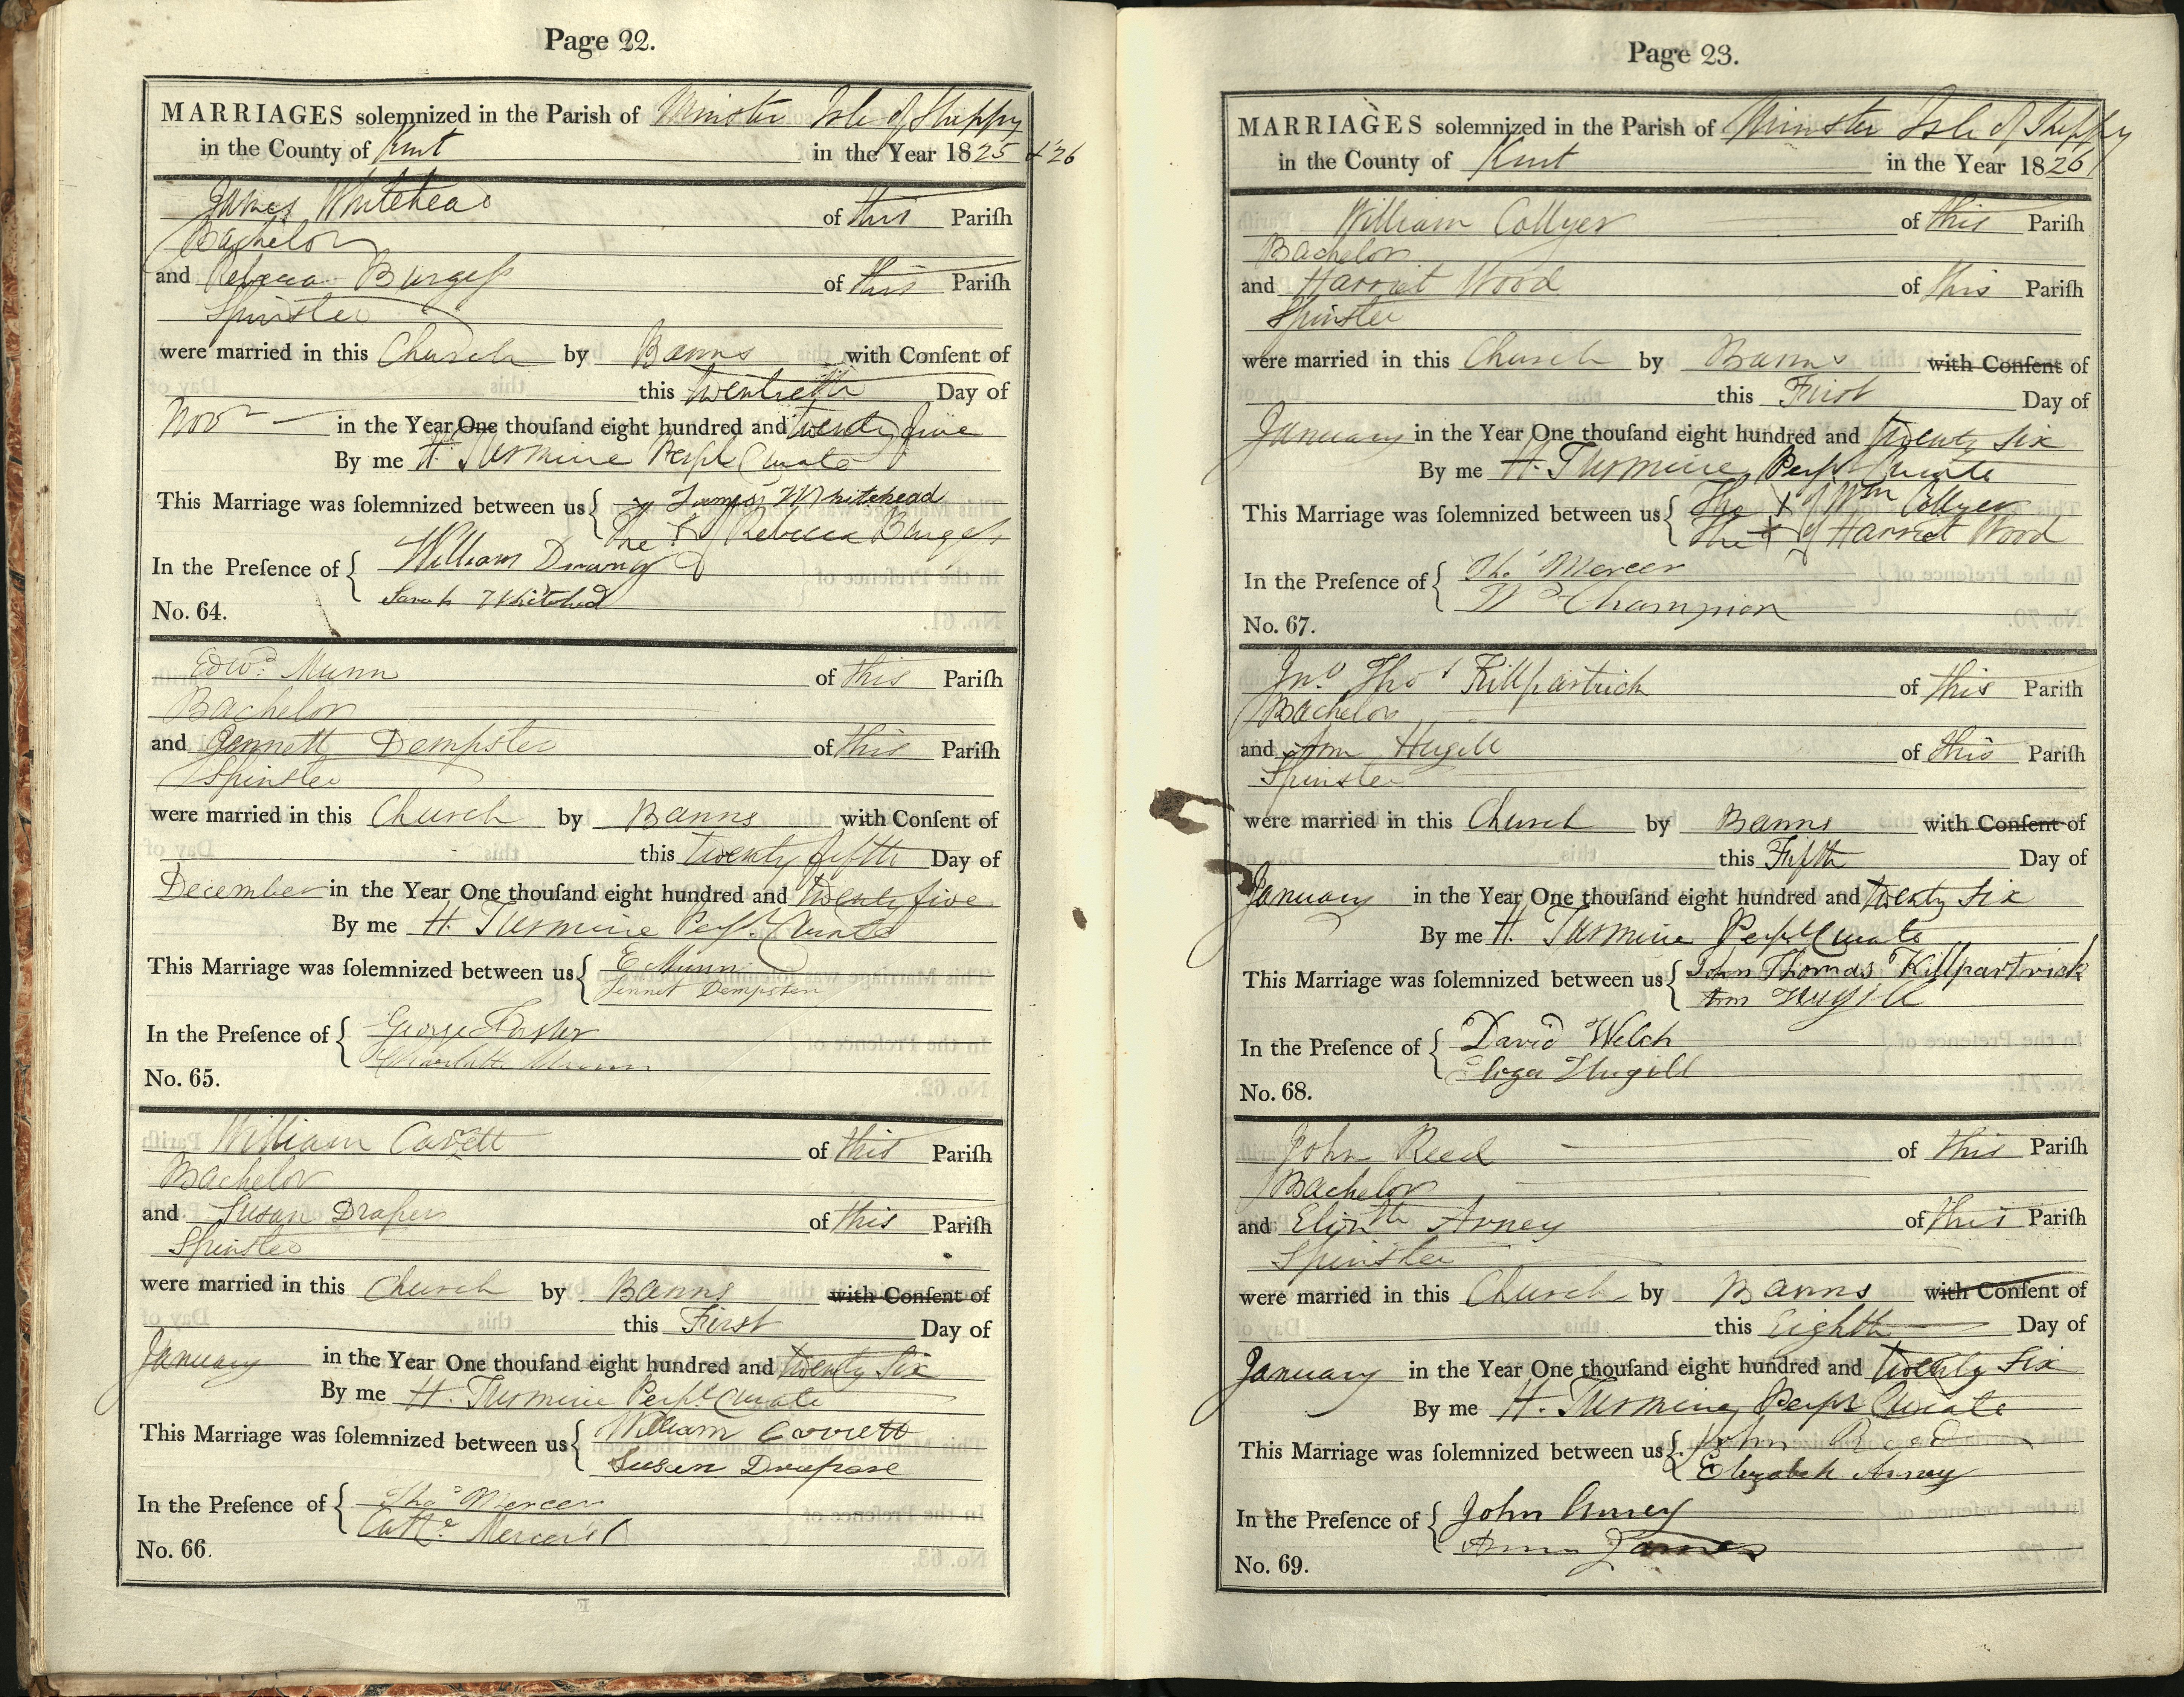 Page 22.
MARRIAGES solemnized in the Parish of Minster Isle of Sheppy
in the County of Kent in the Year 1825 & '26
James Whitehead of this Pariſh
Bachelor
and Rebecca Burgeſs of this Pariſh
Spinster
were married in this Church by Banns with Conſent of
this twentieth Day of
Novr in the Year One thouſand eight hundred and twenty five
By me H. Turmine Perpl Curate
This Marriage was ſolemnized between us { James Whitehead
The X of Rebecca Burgeſs
In the Preſence of { William
Sarah Whitehead
No. 64.
Edwd. Munn of this Pariſh
Bachelor
and Jennett Dempster of this Pariſh
Spinster
were married in this Church by Banns with Conſent of
this twenty fifth Day of
December in the Year One thouſand eight hundred and twenty five
By me H. Turmine Perpl. Curate
This Marriage was ſolemnized between us { E Munn
Jennet Dempster
In the Preſence of { George
Charlotte Munn
No. 65.
William Carrett of this Pariſh
Bachelor
and Susan Draper of this Pariſh
Spinster
were married in this Church by Banns with Conſent of
this First Day of
January in the Year One thouſand eight hundred and twenty Six
By me H. Turmine Perpl Curate
This Marriage was ſolemnized between us { William
Susan
In the Preſence of { Thos Mercer
Cathe Mercer
No. 66.
Page 23.
MARRIAGES solemnized in the Parish of Minster Isle of Sheppy
in the County of Kent in the Year 1826
William Collyer of this Pariſh
Bachelor
and Harriet Wood of this Pariſh
Spinster
were married in this Church by Banns with Conſent of
this First Day of
January in the Year One thouſand eight hundred and twenty Six
By me H. Turmine Perpl Curate
This Marriage was ſolemnized between us { The X of Wm Collyer
The X of Harriet Wood
In the Preſence of { Thos Mercer
Wm Champion
No. 67.
Jno Thos Killpartrick of this Pariſh
Bachelor
and Ann Hugill of this Pariſh
Spinster
were married in this Church by Banns with Conſent of
this Fifth Day of
January in the Year One thouſand eight hundred and twenty Six
By me H. Turmine Perpl Curate
This Marriage was ſolemnized between us { John Thomas Killpartrick
Ann Hugill
In the Preſence of { David Welch
Eliza Hugill
No. 68.
John Reed of this Pariſh
Bachelor
and Elizth Arney of this Pariſh
Spinster
were married in this Church by Banns with Conſent of
this Eighth Day of
January in the Year One thouſand eight hundred and twenty Six
By me H. Turmine Perpl Curate
This Marriage was ſolemnized between us { John Reed
Elizabeth Arney
In the Preſence of { John Arney
Ann James
No. 69.